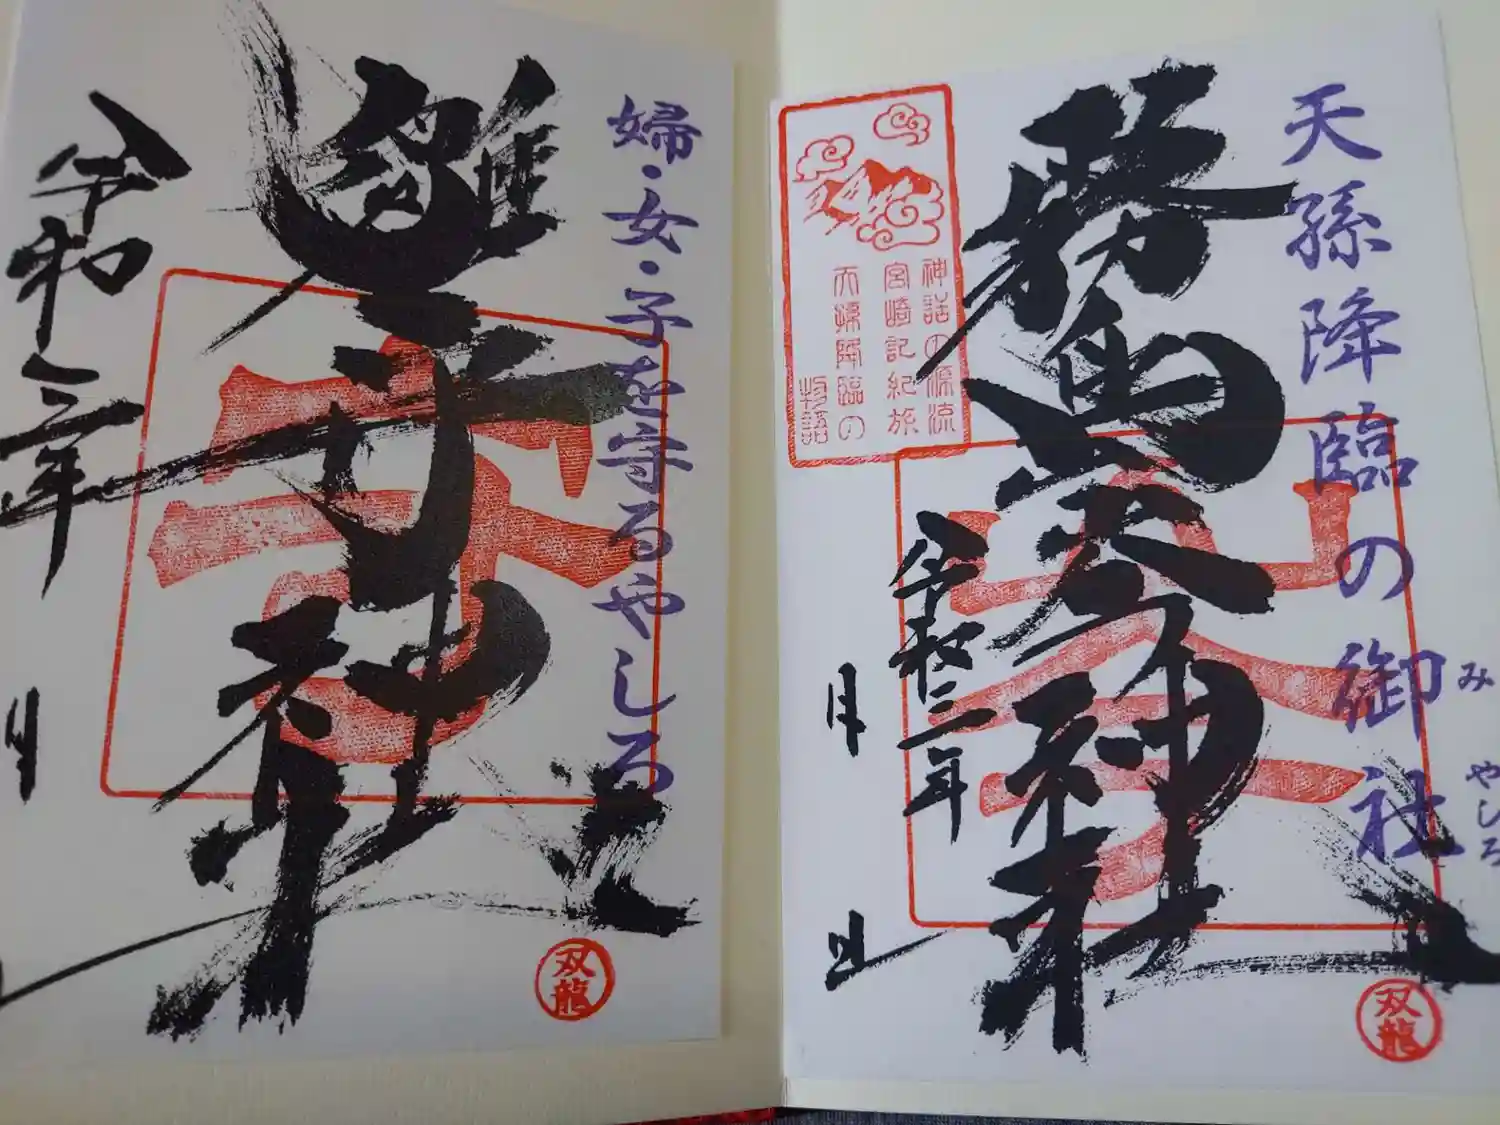 天孫降臨の御社
みやしろ
霧島岑神社
神話の源流
宮崎記紀旅
天孫降臨の
物語
令和二年
月
日
双龍
婦・女・子を守るやしろ
雛守神社
令和二年
月
双龍